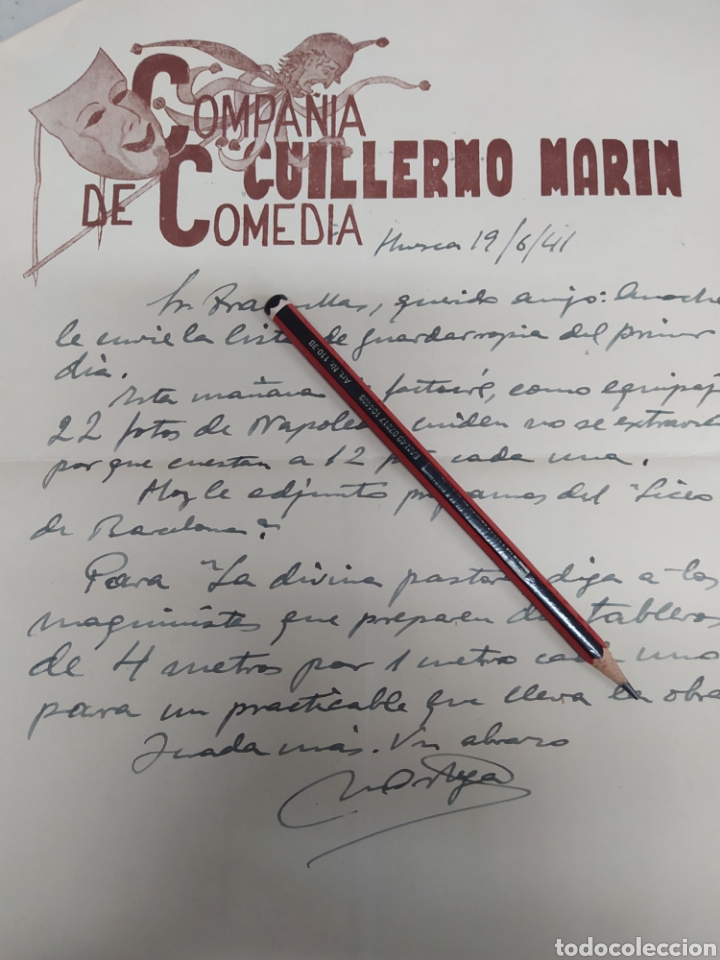 COMPAÑIA
GUILLERMO MARIN
DE COMEDIA
Huesca 19/6/41
Sr. querido amigo: Anoche
le envié la lista de guardarropia del primer
dia.
Esta mañana facturé, como equipaje
22 fotos de Napoleon cuiden no se extravien
por que cuestan a 12 cada una.
Hoy le adjunto programas del "Liceo
de Barcelona".
Para "La divina pastora" diga a los
maquinistas que preparen dos tableros
de 4 metros por 1 metro cada uno
para un practicable que lleva la obra
Y nada más. Un abrazo
Art. Nr. 110-3B
todocoleccion